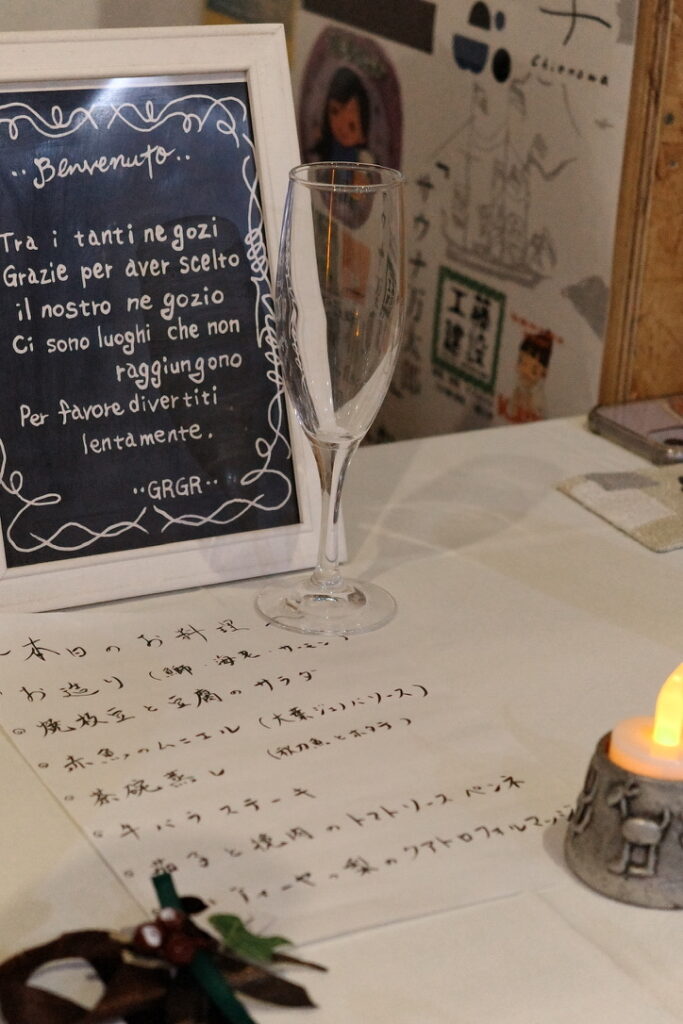 ..Benvenuto..
Tra i tanti negozi
Grazie per aver scelto
il nostro negozio
Ci sono luoghi che non
raggiungono
Per favore divertiti
lentamente.
..GRGR..
Chienowa
サウナ 万太郎
藤役
工建
本日のお料理
お造り (鰤・海老・サーモン)
と豆腐のサラダ
赤魚のムニエル (大葉ジェノバソース)
茶碗蒸し (太刀魚とホタテ)
牛バラステーキ
茄子と挽肉のトマトソースペンネ
梨のクアトロフォルマッジ